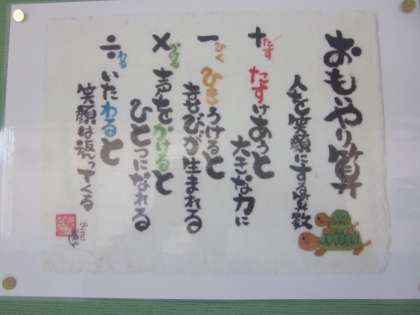 おもいやり算
人を笑顔にする算数
＋たす たすけあうと
大きな力に
−ひく ひきうけると
喜びが生まれる
×かける 声をかけると
ひとつになれる
÷わる いたわると
笑顔は返ってくる